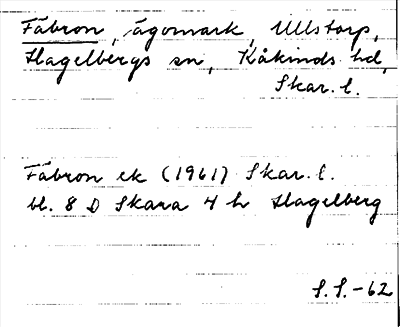 Fäbron, ägomark, Ullstorp,
Hagelbergs sn, Kåkinds hd,
Skar. l.
Fäbron ek (1961) Skar. l.
bl. 8 D Skara 4 h Hagelberg
S.S.-62